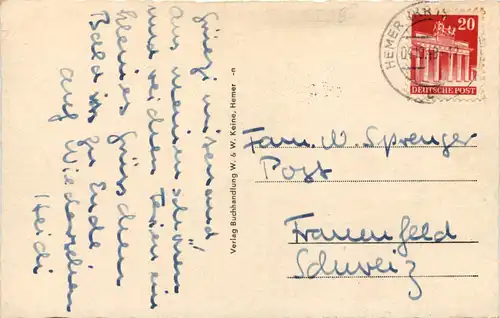 Grüezi mitenand!
aus meinen schönen
und reichen Ferien ein
kleines Grüsschen
Bald ist zu Ende
auf Wiedersehen
Heidi
Verlag Buchhandlung W. & W. Keine, Hemer -n
HEMER
20
DEUTSCHE POST
Fam. W. Sprenger
Post
Frauenfeld
Schweiz